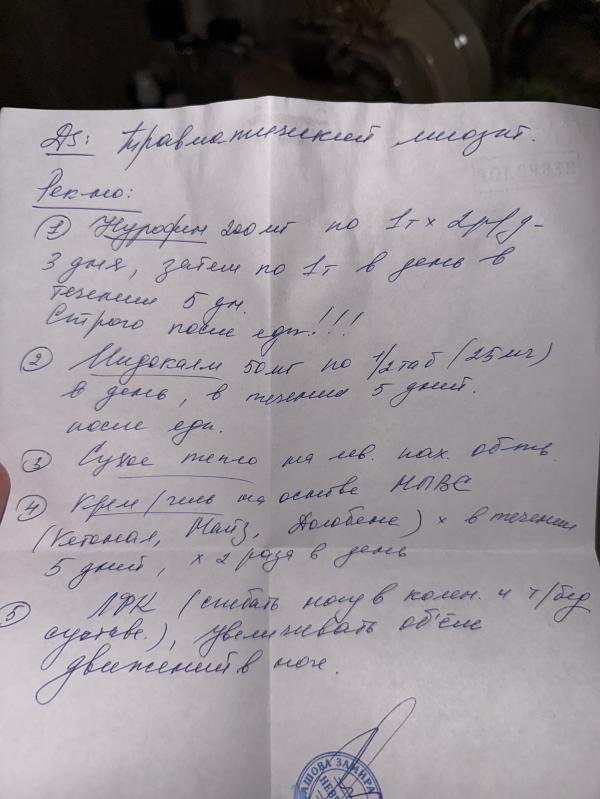 Ds: Травматический миозит.
НЕВРОЛОГ
Рек-но:
① Нурофин 200 мг по 1т × 2р/д-
3 дня, затем по 1т в день в
течении 5 дн.
Строго после еды!!!
② Мидокалм 50мг по 1/2 таб (25мг)
в день, в течении 5 дней.
после еды.
③ Сухое тепло на лев. пах. обл-ть.
④ Крем/гель на основе НПВС
(Кетонал, Найз, Долобене) × в течении
5 дней, × 2 раза в день
⑤ ЛФК (сгибать ногу в колен. и т/бед
суставе.), увеличивать объём
движений в ноге.
АШОВА ЗАМИРА
НЕВР